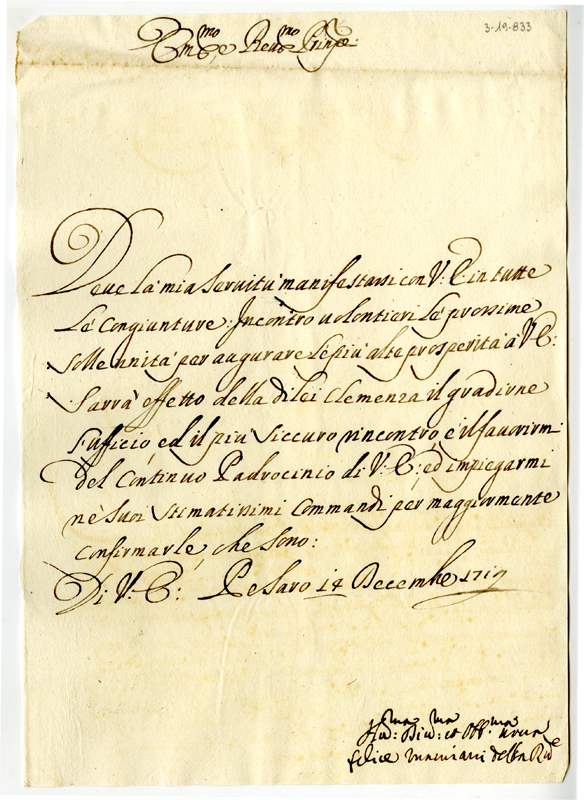 3-19-833
Em.mo e Reu.mo Prinpe:
Deue la mia Seruitù manifestarsi con V: E: in tutte
Le Congiunture. Jncontro uolontieri Le prossime
sollennità per augurare Le più alte prosperità à V: E:
Sarrà effetto della di lei Clemenza il gradirne
l'ufficio, ed il più siccuro rincontro è il fauorirmi
del Continuo Padrocinio di V: E: ed impiegarmi
nè suoi stimatissimi Commandi per maggiormente
confirmarle, che sono:
Di V: E: Pesaro 14 Decembe 1719
ma ma ma
Diu: et Obb.
felice della